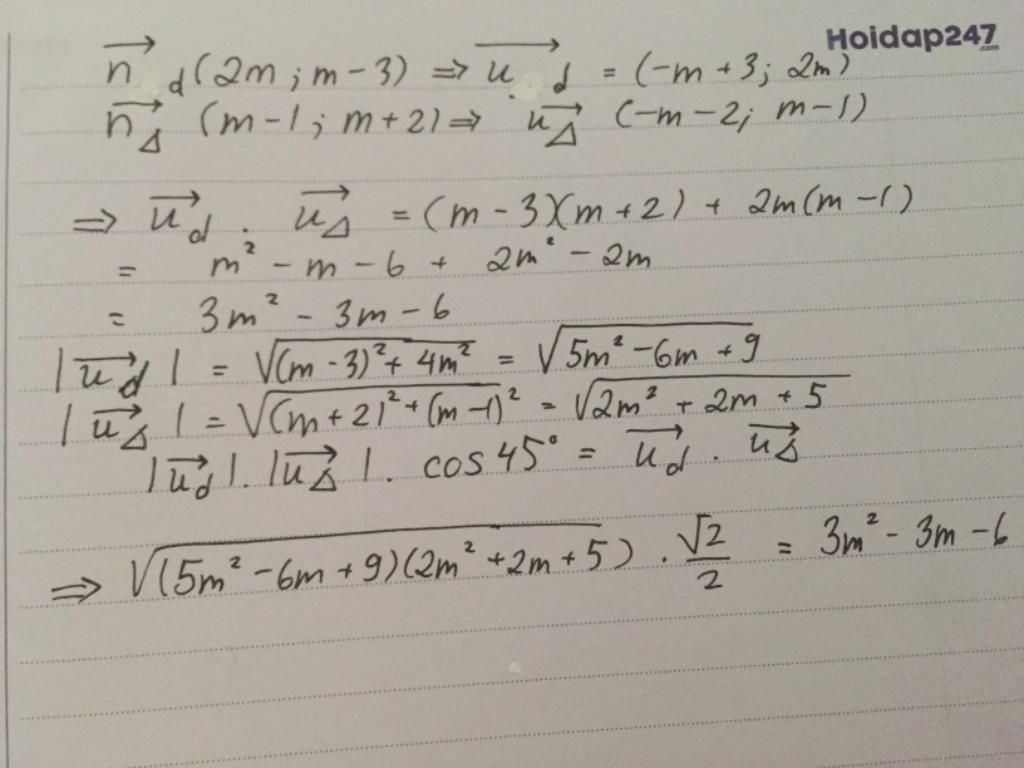 Hoidap247
.com
→n_d (2m ; m - 3) ⇒ →u_d = (-m + 3 ; 2m)
→n_Δ (m - 1 ; m + 2) ⇒ →u_Δ (-m - 2 ; m - 1)
⇒ →u_d . →u_Δ = (m - 3)(m + 2) + 2m(m - 1)
= m² - m - 6 + 2m² - 2m
= 3m² - 3m - 6
|→u_d| = √((m - 3)² + 4m²) = √(5m² - 6m + 9)
|→u_Δ| = √((m + 2)² + (m - 1)²) = √(2m² + 2m + 5)
|→u_d| . |→u_Δ| . cos 45° = →u_d . →u_Δ
⇒ √((5m² - 6m + 9)(2m² + 2m + 5)) . √2/2 = 3m² - 3m - 6